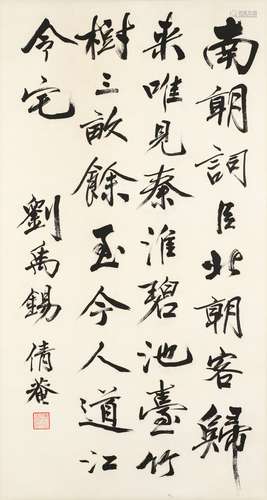 南朝詞臣北朝客歸
来唯見秦淮碧池臺竹
樹三畝餘至今人道江
令宅
劉禹錫 倩菴